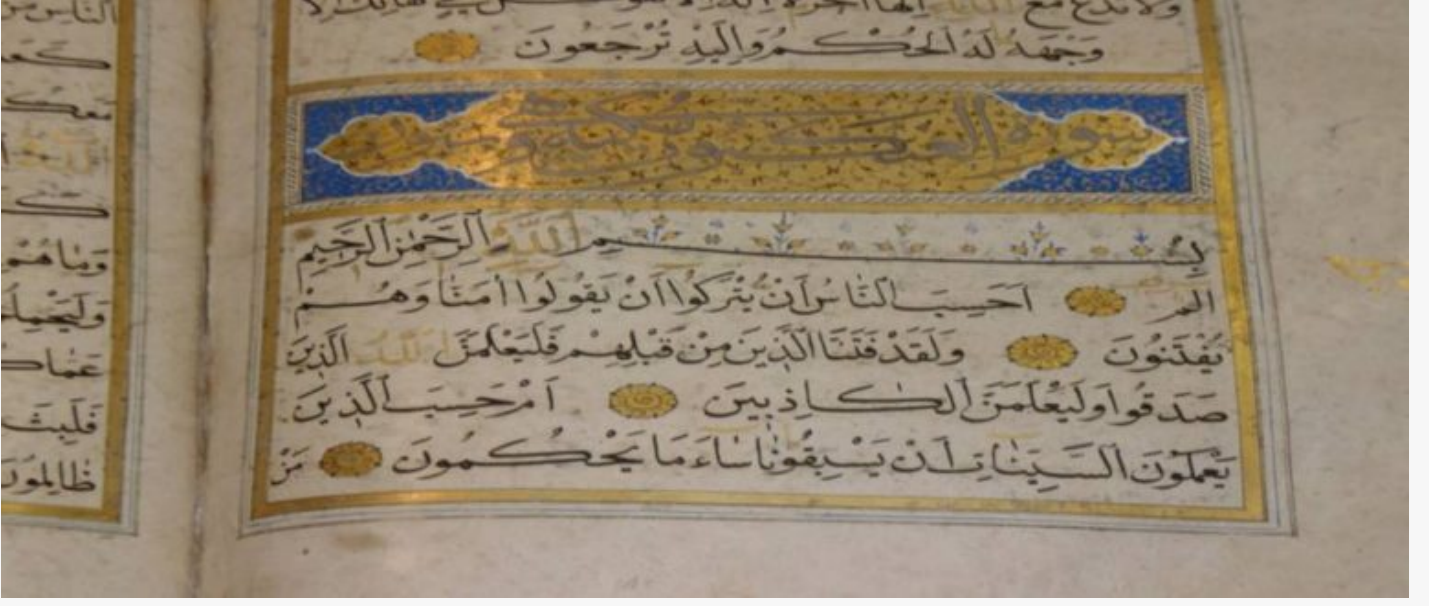 ولا تدع مع الله الها اخر لا اله الا هو كل شي هالك الا
وَجْهَهُ لَهُ الْحُكْمُ وَاِلَيْهِ تُرْجَعُونَ
سورة العنكبوت
بِسْمِ اللّٰهِ الرَّحْمٰنِ الرَّحِيمِ
الم اَحَسِبَ النَّاسُ اَنْ يُتْرَكُوا اَنْ يَقُولُوا اٰمَنَّا وَهُمْ
يُفْتَنُونَ وَلَقَدْ فَتَنَّا الَّذِينَ مِنْ قَبْلِهِمْ فَلَيَعْلَمَنَّ اللّٰهُ الَّذِينَ
صَدَقُوا وَلَيَعْلَمَنَّ الْكَاذِبِينَ اَمْ حَسِبَ الَّذِينَ
يَعْمَلُونَ السَّيِّئَاتِ اَنْ يَسْبِقُونَا سَاءَ مَا يَحْكُمُونَ مَنْ
الناس
وَمَا هُمْ
فَلَبِثَ
ظَالِمُونَ